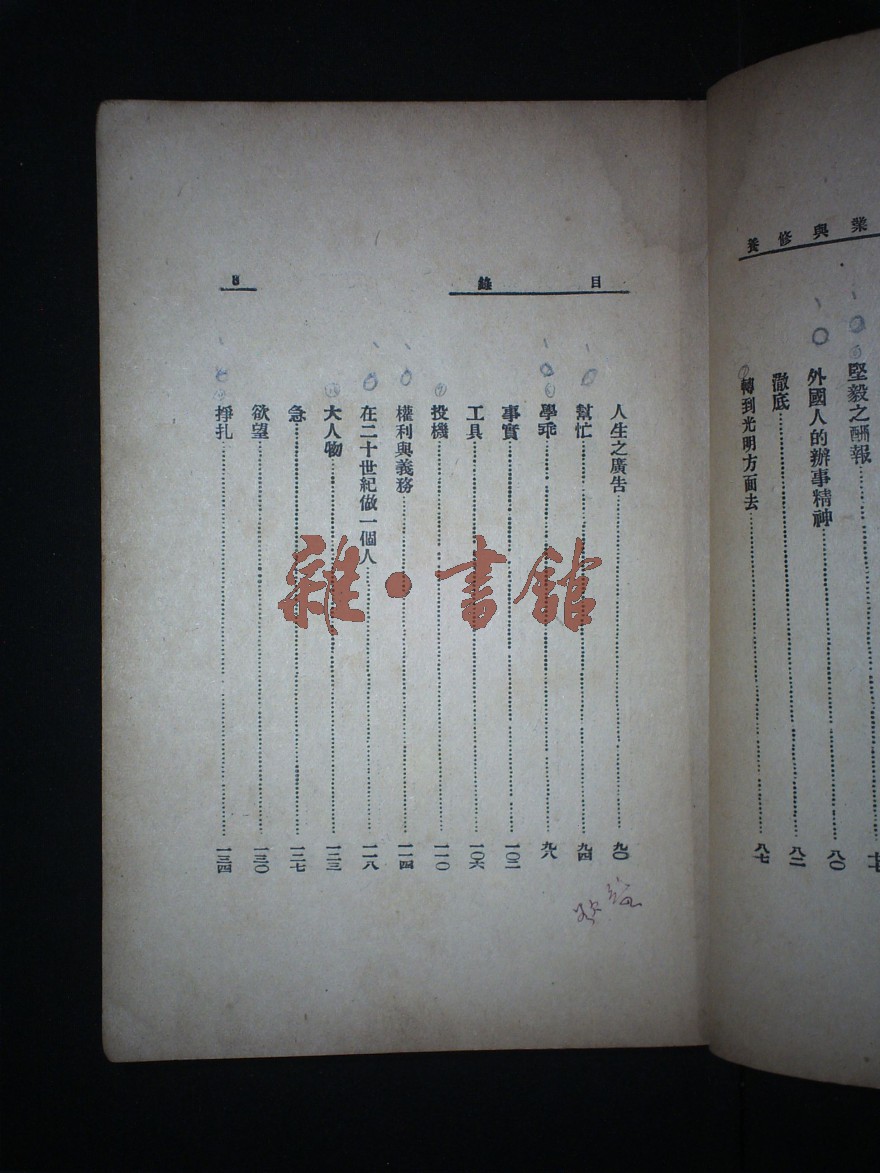 業與修養
堅毅之酬報
外國人的辦事精神……八〇
澈底……八二
轉到光明方面去……八七
目錄
人生之廣告……九〇
幫忙……九四
學乖……九八
事實……一〇二
工具……一〇六
投機……一一〇
權利與義務……一一四
在二十世紀做一個人……一一八
大人物……一二三
急……一二七
欲望……一三〇
掙扎……一三四
雜·書館